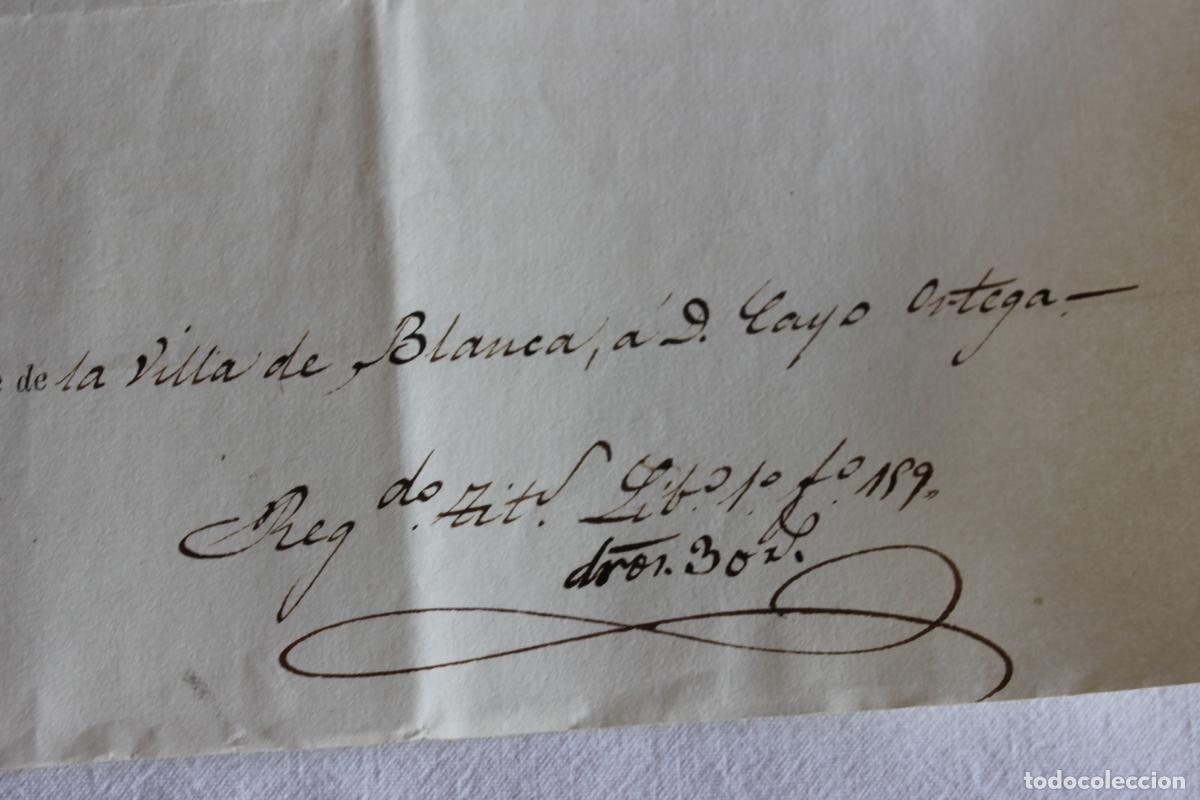 de la Villa de Blanca, á D. Cayo Ortega.—
Reg.do Tit.l Lib.o 1.o fo. 159.
dros. 30 rs.
todocoleccion